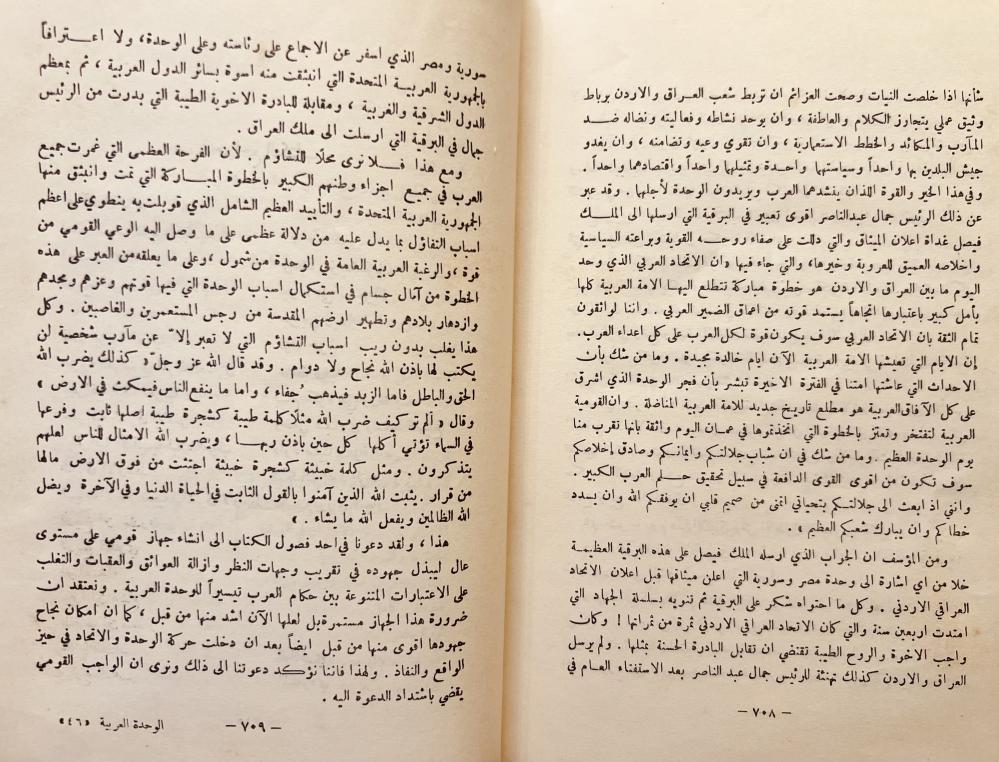 شأنها اذا خلصت النيات وصحت العزائم ان تربط شعب العراق والاردن برباط
وثيق عملي يتجاوز الكلام والعاطفة ، وان يوحد نشاطه وفعاليته ونضاله ضد
المآرب والمكائد والخطط الاستعمارية ، وان تقوي وعيه وتضامنه ، وان يغدو
جيش البلدين بها واحداً وسياستها واحدة وتمثيلها واحداً واقتصادهما واحداً .
وفي هذا الخير والقوة اللذان ينشدهما العرب ويريدون الوحدة لأجلها . وقد عبر
عن ذلك الرئيس جمال عبدالناصر اقوى تعبير في البرقية التي ارسلها الى الملك
فيصل غداة اعلان الميثاق والتي دللت على صفاء روحه القوية وبراعته السياسية
واخلاصه العميق للعروبة وخيرها، والتي جاء فيها «ان الاتحاد العربي الذي وحد
اليوم ما بين العراق والاردن هو خطوة مباركة تتطلع اليها الامة العربية كلها
بأمل كبير باعتبارها اتجاهاً يستمد قوته من اعماق الضمير العربي . واننا لواثقون
تمام الثقة بان الاتحاد العربي سوف يكون قوة لكل العرب على كل اعداء العرب.
إن الايام التي تعيشها الامة العربية الآن ايام خالدة مجيدة . وما من شك بأن
الاحداث التي عاشتها امتنا في الفترة الاخيرة تبشر بأن فجر الوحدة الذي اشرق
على كل الآفاق العربية هو مطلع تاريخ جديد للامة العربية المناضلة . وان القومية
العربية لتفتخر وتعتز بالخطوة التي اتخذتموها في عمان اليوم واثقة بانها تقرب منا
يوم الوحدة العظيم . وما من شك في ان شباب جلالتكم وايمانكم وصادق إخلاصكم
سوف تكون من اقوى القوى الدافعة في سبيل تحقيق حلم العرب الكبير .
وانني اذ ابعث الى جلالتكم بتحياتي اتمنى من صميم قلبي ان يوفقكم الله وان يسدد
خطاكم وان يبارك شعبكم العظيم » .
ومن المؤسف ان الجواب الذي ارسله الملك فيصل على هذه البرقية العظيمة
خلا من اي اشارة الى وحدة مصر وسورية التي اعلن ميثاقها قبل اعلان الاتحاد
العراقي الاردني . وكل ما احتواه شكر على البرقية ثم تنويه بسلسلة الجهاد التي
امتدت اربعين سنة والتي كان الاتحاد العراقي الاردني ثمرة من ثمراتها ! وكان
واجب الاخوة والروح الطيبة تقتضي ان تقابل البادرة الحسنة بمثلها . ولم يرسل
العراق والاردن كذلك تهنئة للرئيس جمال عبد الناصر بعد الاستفتاء العام في
— ٧٠٨ —
سورية ومصر الذي اسفر عن الاجماع على رئاسته وعلى الوحدة، ولا اعترافاً
بالجمهورية العربية المتحدة التي انبثقت منه اسوة بسائر الدول العربية ، ثم بمعظم
الدول الشرقية والغربية ، ومقابلة للبادرة الاخوية الطيبة التي بدرت من الرئيس
جمال في البرقية التي ارسلت الى ملك العراق .
ومع هذا فلا نرى محلًا للتشاؤم . لأن الفرحة العظمى التي غمرت جميع
العرب في جميع اجزاء وطنهم الكبير بالخطوة المباركة التي تمت وانبثق منها
الجمهورية العربية المتحدة ، والتأييد العظيم الشامل الذي قوبلت به ينطوي على اعظم
اسباب التفاؤل بما يدل عليه من دلالة عظمى على ما وصل اليه الوعي القومي من
قوة ،والرغبة العربية العامة في الوحدة من شمول ،وعلى ما يعلقه من العبر على هذه
الخطوة من آمال جسام في استكمال اسباب الوحدة التي فيها قوتهم وعزهم ومجدهم
وازدهار بلادهم وتطهير ارضهم المقدسة من رجس المستعمرين والغاصبين . وكل
هذا يغلب بدون ريب اسباب التشاؤم التي لا تعبر إلا ّ عن مآرب شخصية لن
يكتب لها باذن الله نجاح ولا دوام . وقد قال الله عز وجل ّ « كذلك يضرب الله
الحق والباطل فاما الزبد فيذهب جُفاء ، واما ما ينفع الناس فيمكث في الارض »
وقال « ألم تر كيف ضرب الله مثلًا كلمة طيبة كشجرة طيبة اصلها ثابت وفرعها
في السماء تؤتي أكلها كل حين باذن ربها ، ويضرب الله الامثال للناس لعلهم
يتذكرون . ومثل كلمة خبيثة كشجرة خبيثة اجتثت من فوق الارض مالها
من قرار . يثبت الله الذين آمنوا بالقول الثابت في الحياة الدنيا وفي الآخرة ويضل
الله الظالمين ويفعل الله ما يشاء . »
هذا ، ولقد دعونا في احد فصول الكتاب الى انشاء جهاز قومي على مستوى
عال ليبذل جهوده في تقريب وجهات النظر وازالة العوائق والعقبات والتغلب
على الاعتبارات المتنوعة بين حكام العرب تيسيراً للوحدة العربية . ونعتقد ان
ضرورة هذا الجهاز مستمرة بل لعلها الآن اشد منها من قبل ، كما ان امكان نجاح
جهودها اقوى منها من قبل ايضاً بعد ان دخلت حركة الوحدة والاتحاد في حيز
الواقع والنفاذ . ولهذا فاننا نؤكد دعوتنا الى ذلك ونرى ان الواجب القومي
يقضي باشتداد الدعوة اليه .
— ٧٠٩ —
الوحدة العربية «٤٦»